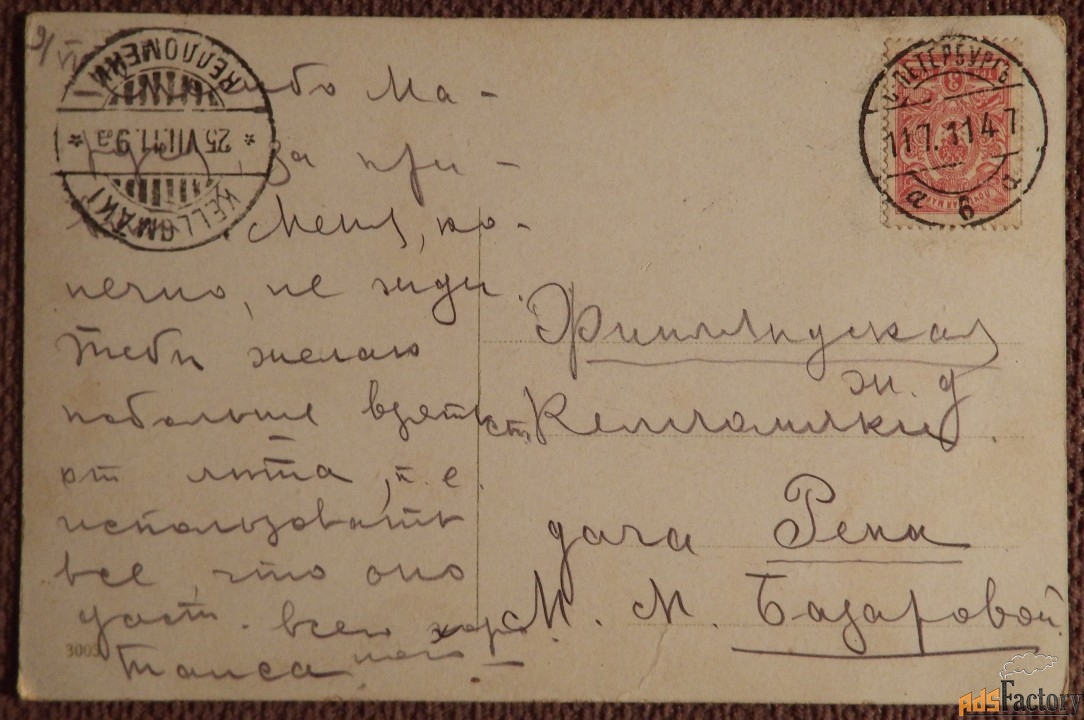 Спасибо Ма-
за при-
Меня, ко-
нечно, не жди.
Тебе желаю
побольше взять
от лета, т. е.
использовать
все, что оно
даст. Всего хоро-
шего
Таиса
3003
КЕЛЛОМЯКИ
25.VII.11.9a
KELLOMÄKI
С.ПЕТЕРБУРГЪ
11 7. 11 4
б
Финляндская
ж. д
ст. Келломякки.
дача Рена
М. М. Базаровой.
AdsFactory